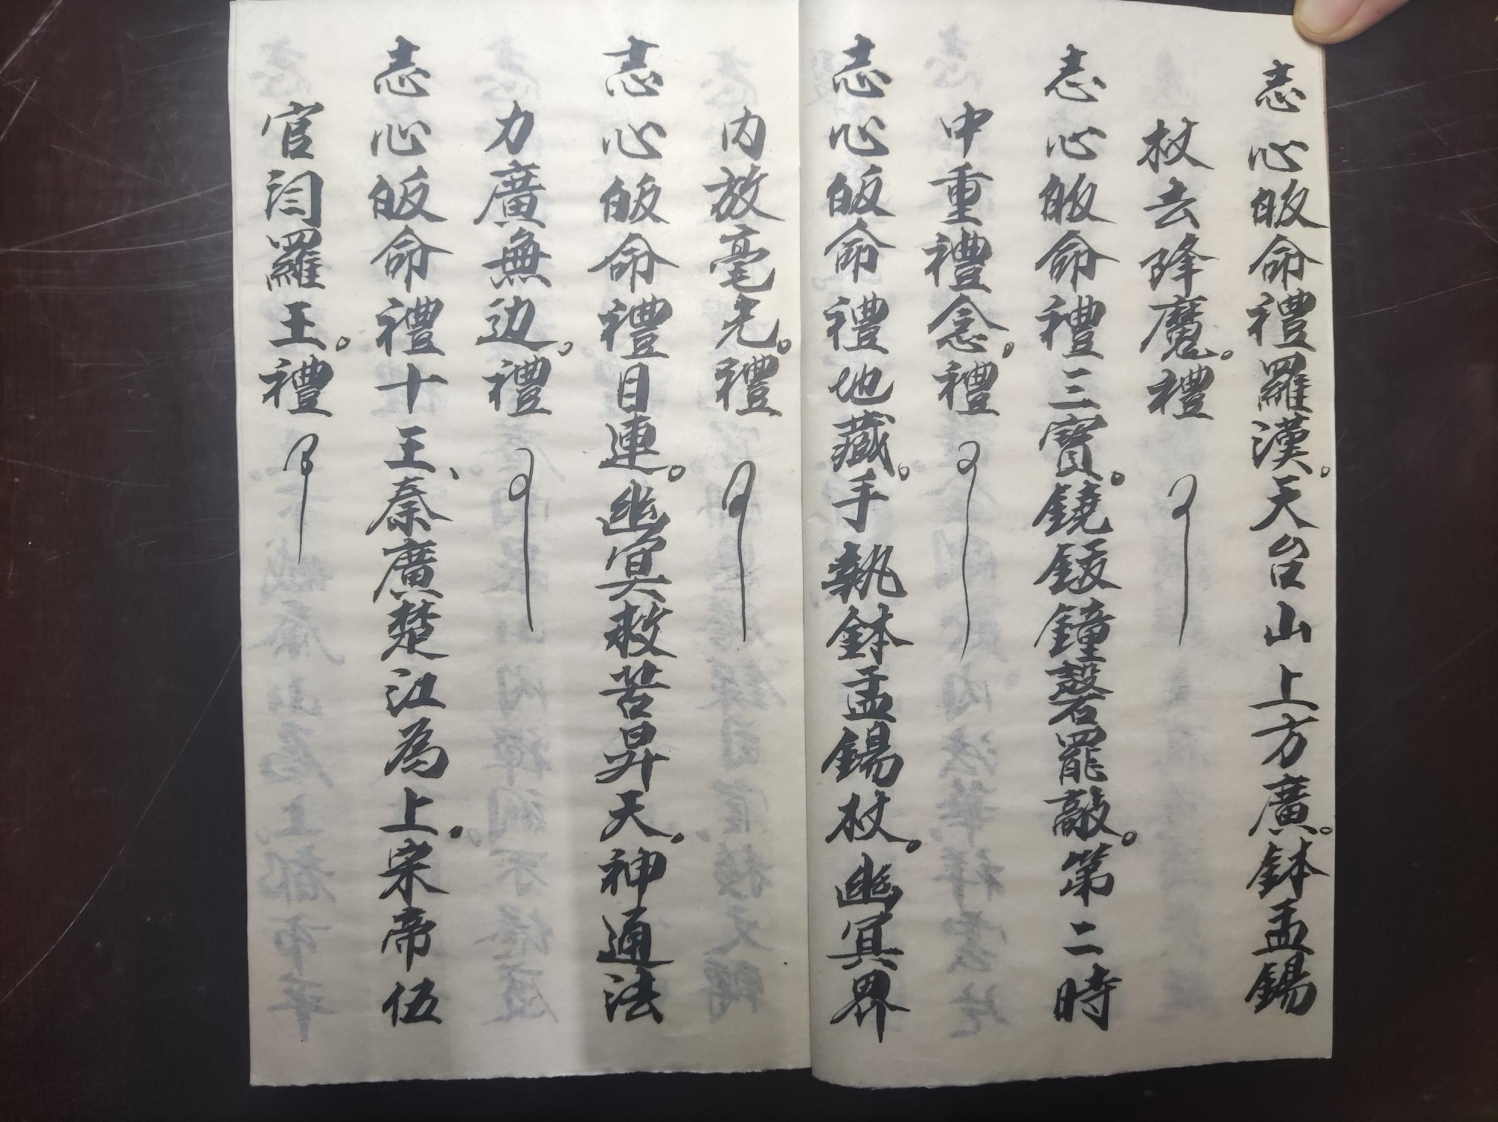 志心皈命禮羅漢。天台山上方廣。鉢盂錫
杖去降魔。禮
志心皈命禮三寶。鐃鈸鐘磬罷敲。第二時
中重禮念。禮
志心皈命禮地藏。手執鉢盂錫杖。幽冥界
内放毫光。禮
志心皈命禮目連。幽冥救苦昇天。神通法
力廣無边。禮
志心皈命禮十王、秦廣楚江為上。宋帝伍
官閆羅王。禮